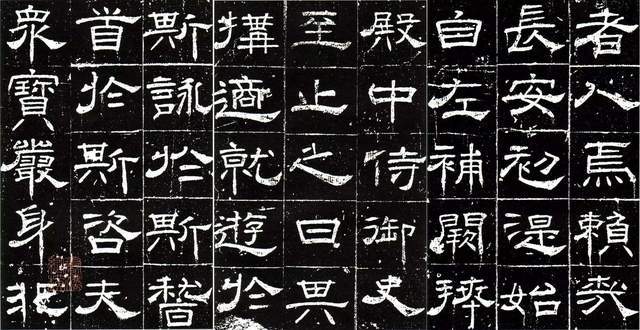 者人焉賴哉
長安初湜始
自左補闕拜
殿中侍御史
至止之日其
構適就遊於
斯詠於斯稽
首於斯咨夫
衆寶嚴身非